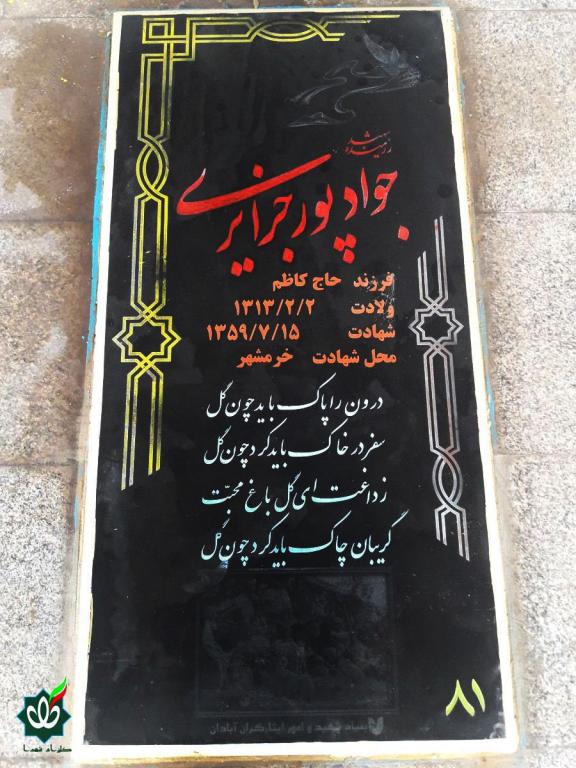 رزمنده شهید
جواد پورجزایری
فرزند حاج کاظم
ولادت ۱۳۱۳/۲/۲
شهادت ۱۳۵۹/۷/۱۵
محل شهادت خرمشهر
درون را پاک باید چون گل
سفر در خاک باید کرد چون گل
ز داغت ای گل باغ محبّت
گریبان چاک باید کرد چون گل
بنیاد شهید و امور ایثارگران آبادان
۸۱
گلزار شهدا